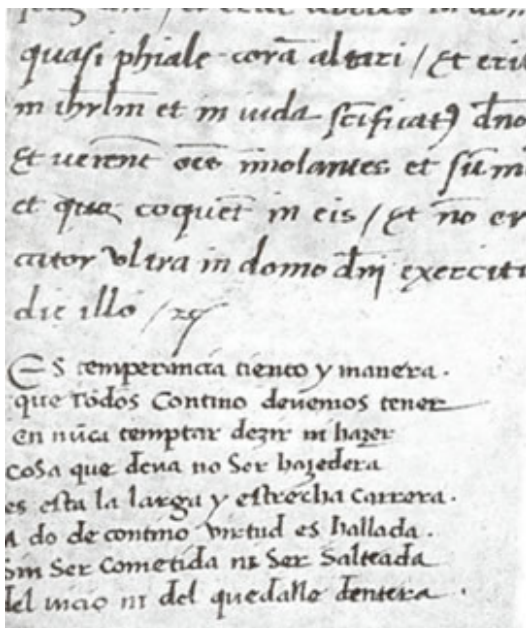 quasi phiale corā altari / Et erit
in ihrlm et in iuda sc̄ificatꝰ dn̄o
Et uenēnt oēs imolantes et sūm
et quoq coquēt in eis / Et nō er
cator vltra in domo dn̄i exercitu
die illo /
Es temperancia tiento y manera .
que Todos Contino deuemos tener
en nūca temptar dezir ni hazer
cosa que deua no Ser hazedera
es esta la larga y estrecha Carrera .
a do de contino virtud es hallada .
sin Ser Cometida ni Ser Salteada
del uicio ni del quedalle dentera .